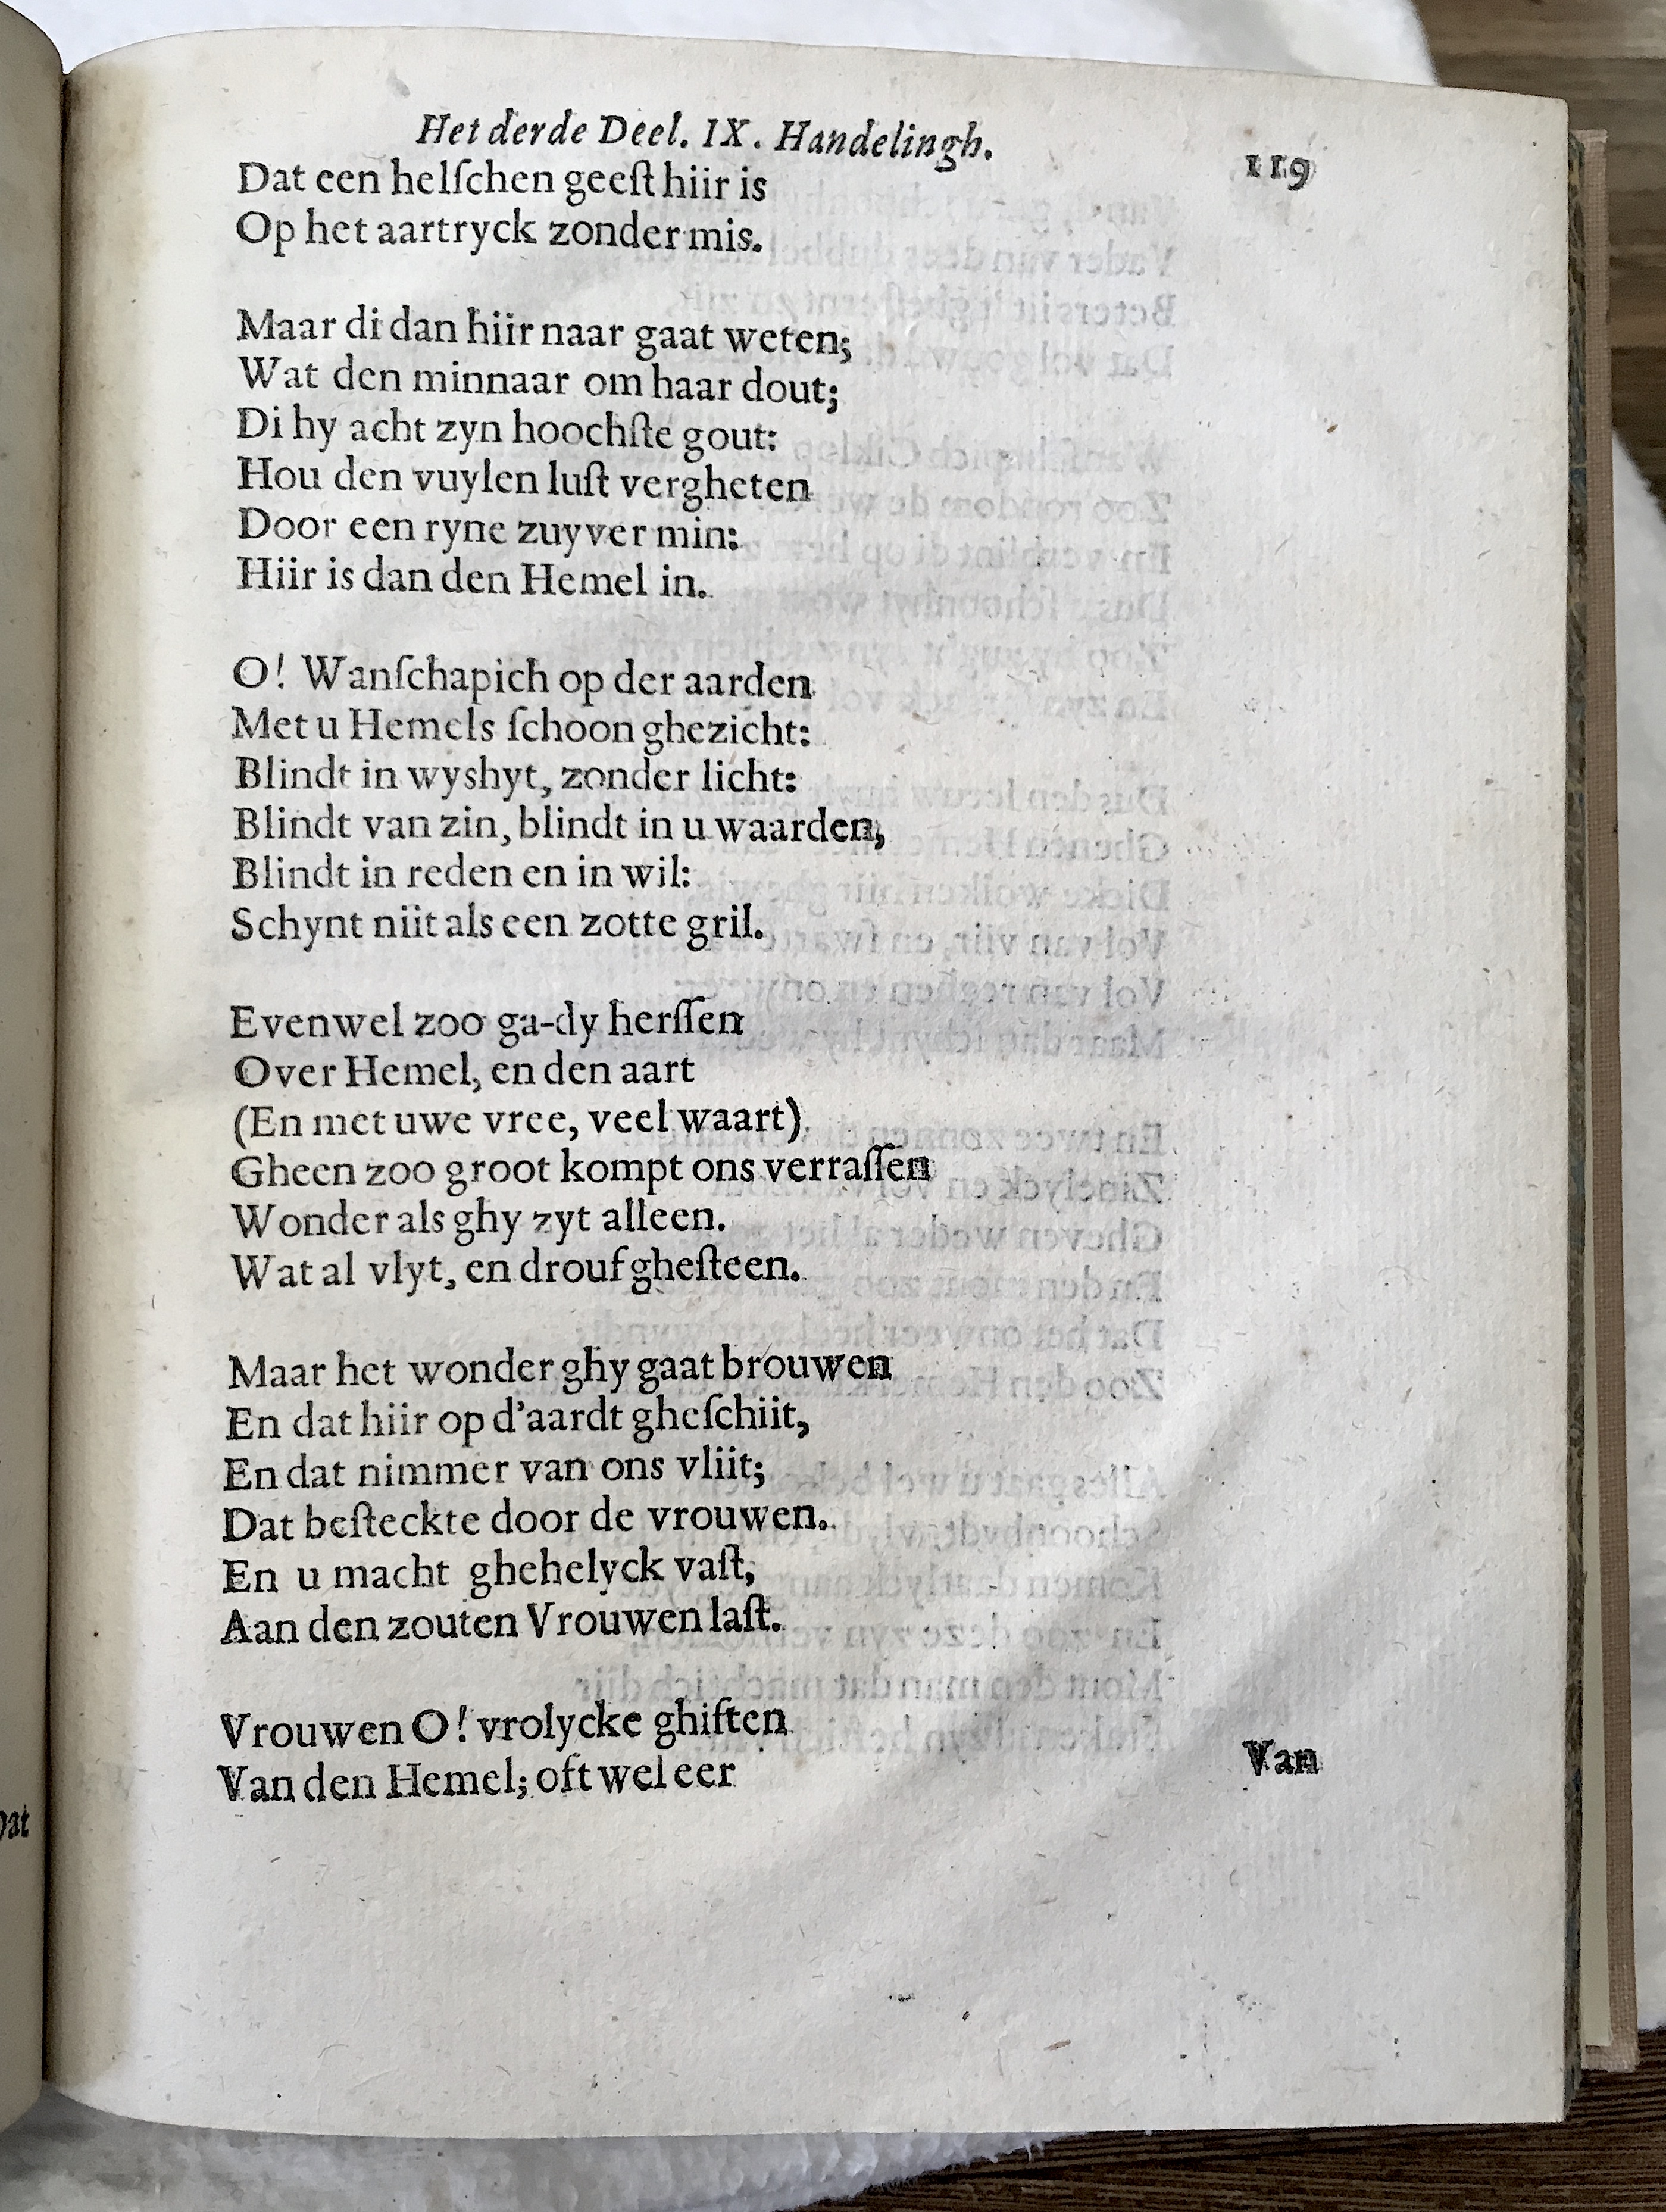 Het derde Deel. IX. Handelingh. 119
Dat een helſchen geeſt hiir is
Op het aartryck zonder mis.
Maar di dan hiir naar gaat weten;
Wat den minnaar om haar dout;
Di hy acht zyn hoochſte gout:
Hou den vuylen luſt vergheten
Door een ryne zuyver min:
Hiir is dan den Hemel in.
O! Wanſchapich op der aarden
Met u Hemels ſchoon ghezicht:
Blindt in wyshyt, zonder licht:
Blindt van zin, blindt in u waarden,
Blindt in reden en in wil:
Schynt niit als een zotte gril.
Evenwel zoo ga-dy herſſen
Over Hemel, en den aart
(En met uwe vree, veel waart)
Gheen zoo groot kompt ons verraſſen
Wonder als ghy zyt alleen.
Wat al vlyt, en drouf gheſteen.
Maar het wonder ghy gaat brouwen
En dat hiir op d'aardt gheſchiit,
En dat nimmer van ons vliit;
Dat beſteckte door de vrouwen.
En u macht ghehelyck vaſt,
Aan den zouten Vrouwen laſt.
Vrouwen O! vrolycke ghiften
Van den Hemel; oft wel eer
Van